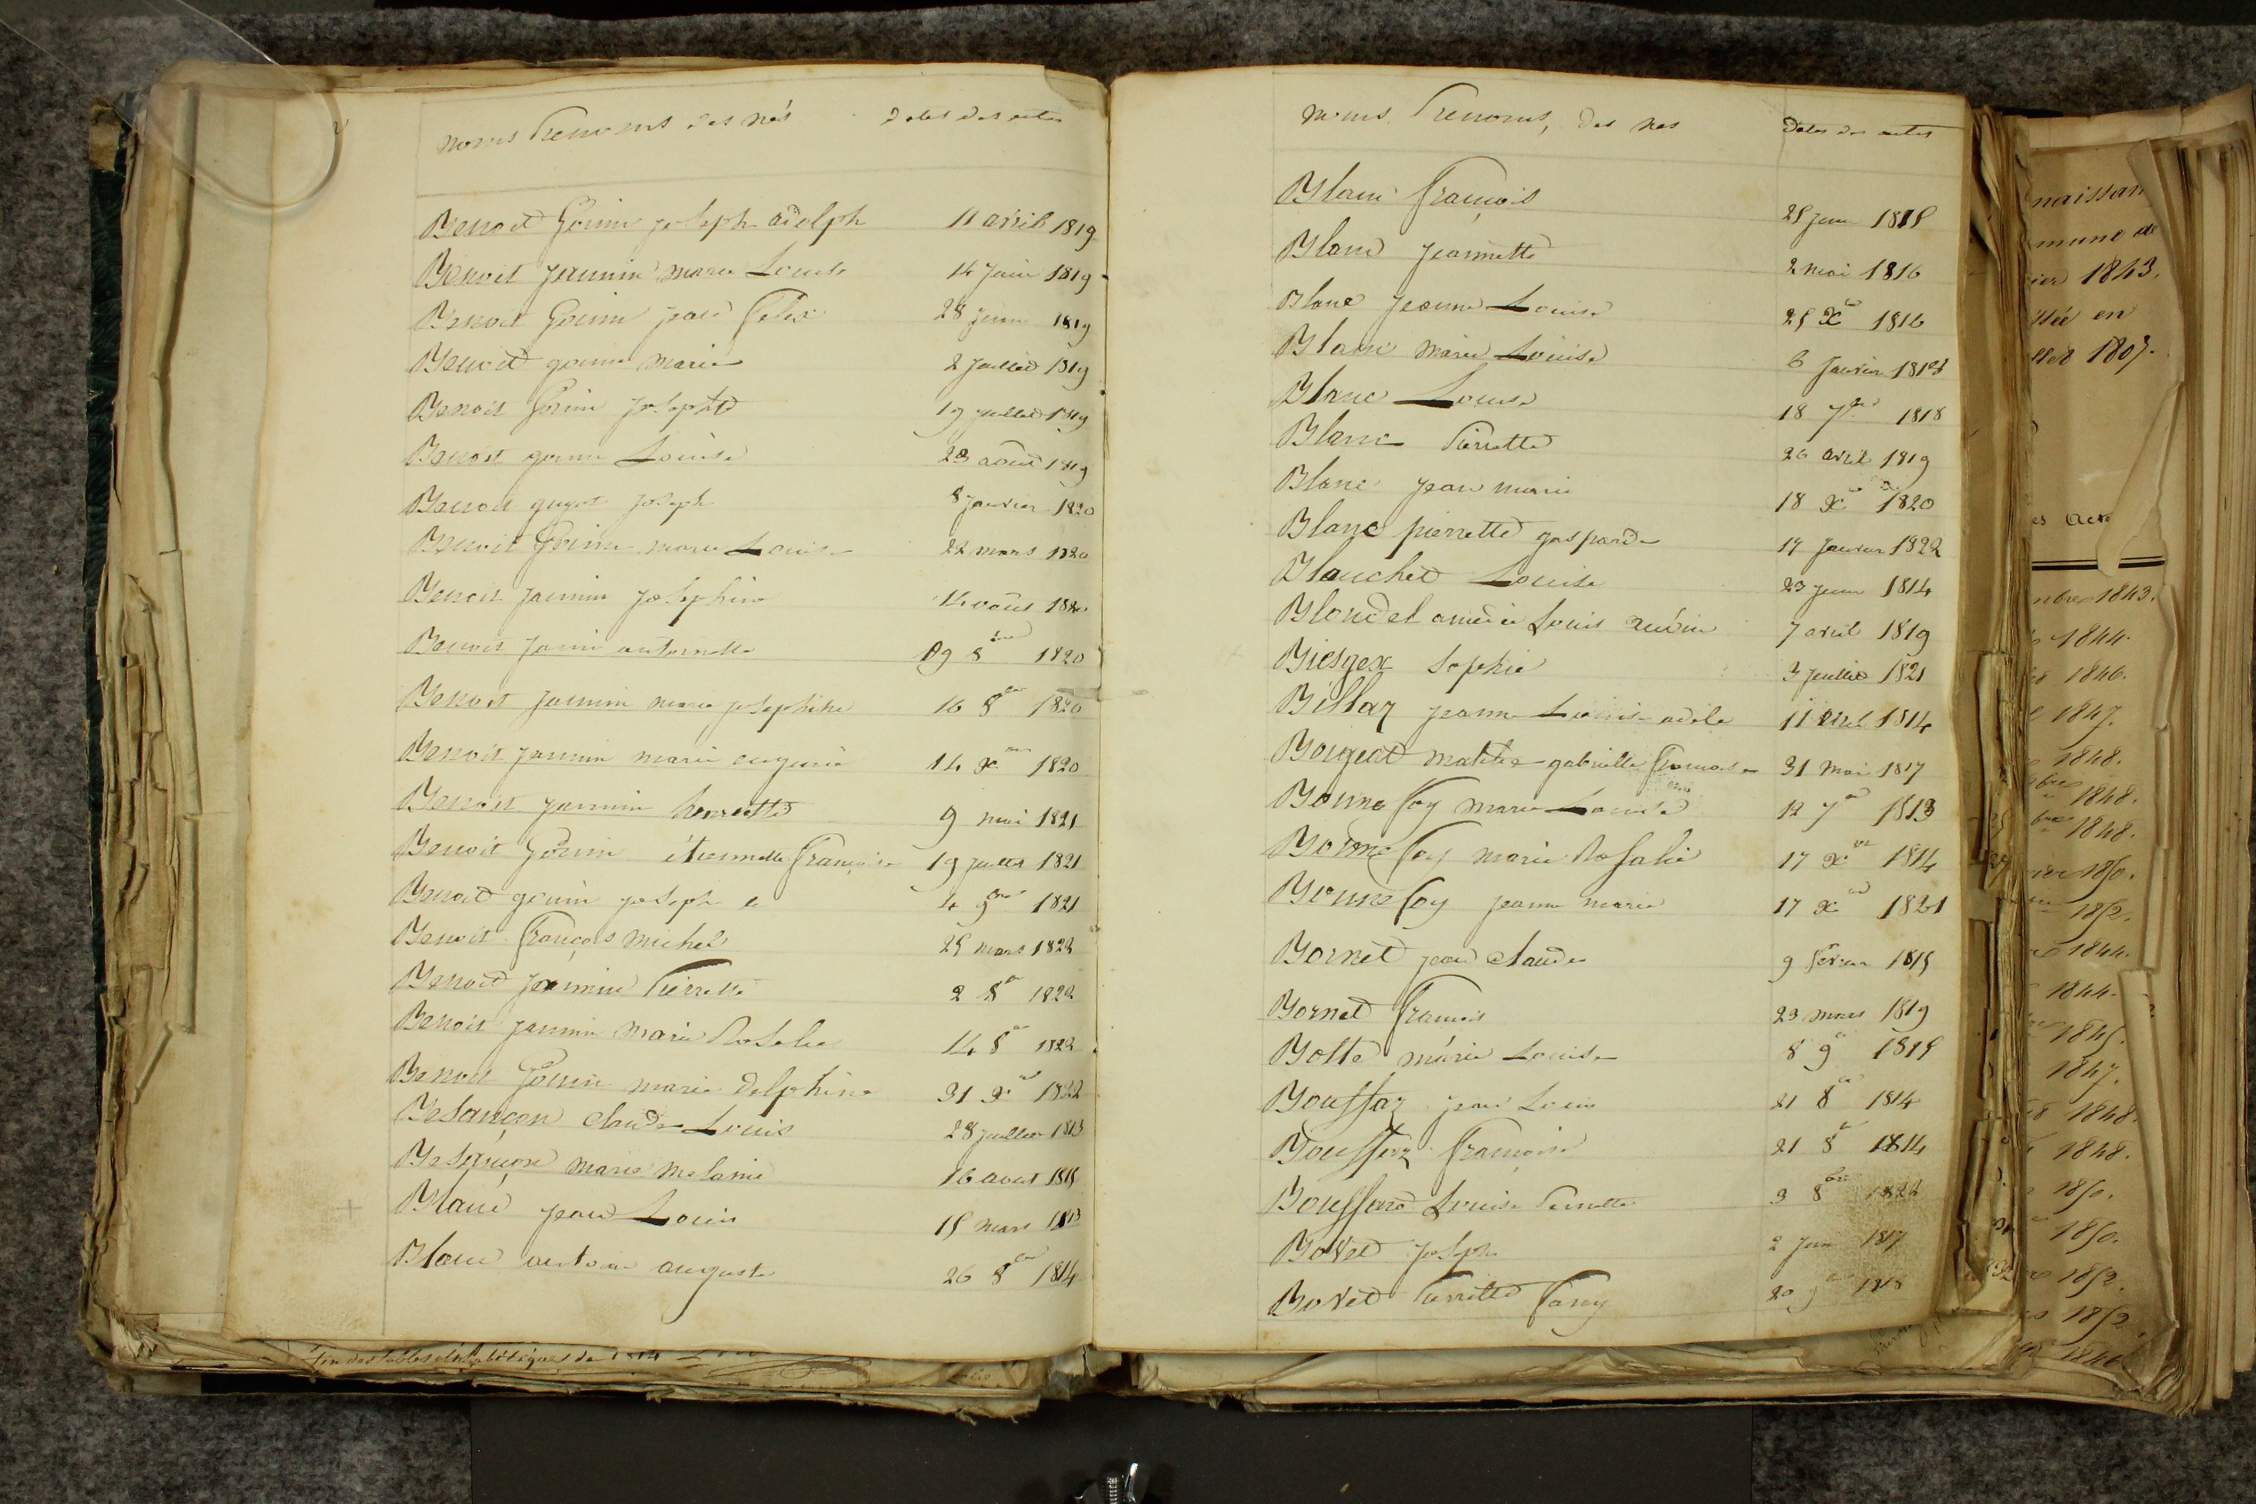 noms Prenoms des nés dates des actes
Benoit Gonin joseph adolph 11 avril 1819
Benoit jannin marie Louise 14 juin 1819
Benoit Gonin jean felix 28 juin 1819
Benoit gonin marie 2 juillet 1819
Benoit Gonin josephte 19 juillet 1819
Benoit gonin Louise 23 août 1819
Benoit guyot joseph 8 janvier 1820
Benoit Gonin marie Louise 22 mars 1820
Benoit jannin josephine 14 août 1820
Benoit jannin antoinette 8 1820
Benoit jannin marie josephine 16 8bre 1820
Benoit jannin marie eugenie 14 xbre 1820
Benoit jannin henriette 9 mai 1821
Benoit Gonin étiennette françoise 19 juillet 1821
Benoit gonin joseph 4 9bre 1821
Benoit françois michel 25 mars 1822
Benoit jannin Pierrette 2 8bre 1822
Benoit jannin marie Rosalie 14 8bre 1822
Benoit Gonin marie delphine 31 xbre 1822
Besançon claude Louis 28 juillet 1813
Besançon marie melanie 16 aout 1815
Blanc jean Louis 15 mars 1813
Blanc antoine auguste 26 8bre 1814
noms, Prenoms, des nés Dates des actes
Blanc françois 25 juin 1815
Blanc jeannette 2 mai 1816
Blanc jeanne Louise 25 xbre 1816
Blanc marie Louise 6 janvier 1818
Blanc Louise 18 7bre 1818
Blanc Pierrette 26 avril 1819
Blanc jean marie 18 xbre 1820
Blanc pierrette gasparde 17 janvier 1822
Blanchet Louise 23 juin 1814
Blondel amedée Louis 7 avril 1819
Biesgex sophie 3 juillet 1821
Billaz jeanne Louise adele 11 avril 1814
Bougeat gabrielle francoise 31 mai 1817
Bonnefoy marie Louise 12 7bre 1813
Bonnefoy marie Rosalie 17 xbre 1814
Bonnefoy jeanne marie 17 xbre 1821
Bornet jean claude 9 fevrier 1815
Bornet francois 23 mars 1819
Botte marie Louise 8 9bre 1815
Bouffaz jean Louis 21 8bre 1814
Bouffaz françoise 21 8bre 1814
Bouffard Louise Pernette 3 8bre 1822
Bovet joseph 2 juin 1817
Bovet Pierrette fany 20 9bre 1818
fin des tables alphabétiques de
naissan
mune de
1843.
en
1807.
es Acte
mbre 1843.
1844.
1846.
1847.
1848.
1848.
1848.
1850.
1852.
1844.
1844.
1845.
1847.
1848.
1848.
1850.
1850.
1852.
1852.
1846